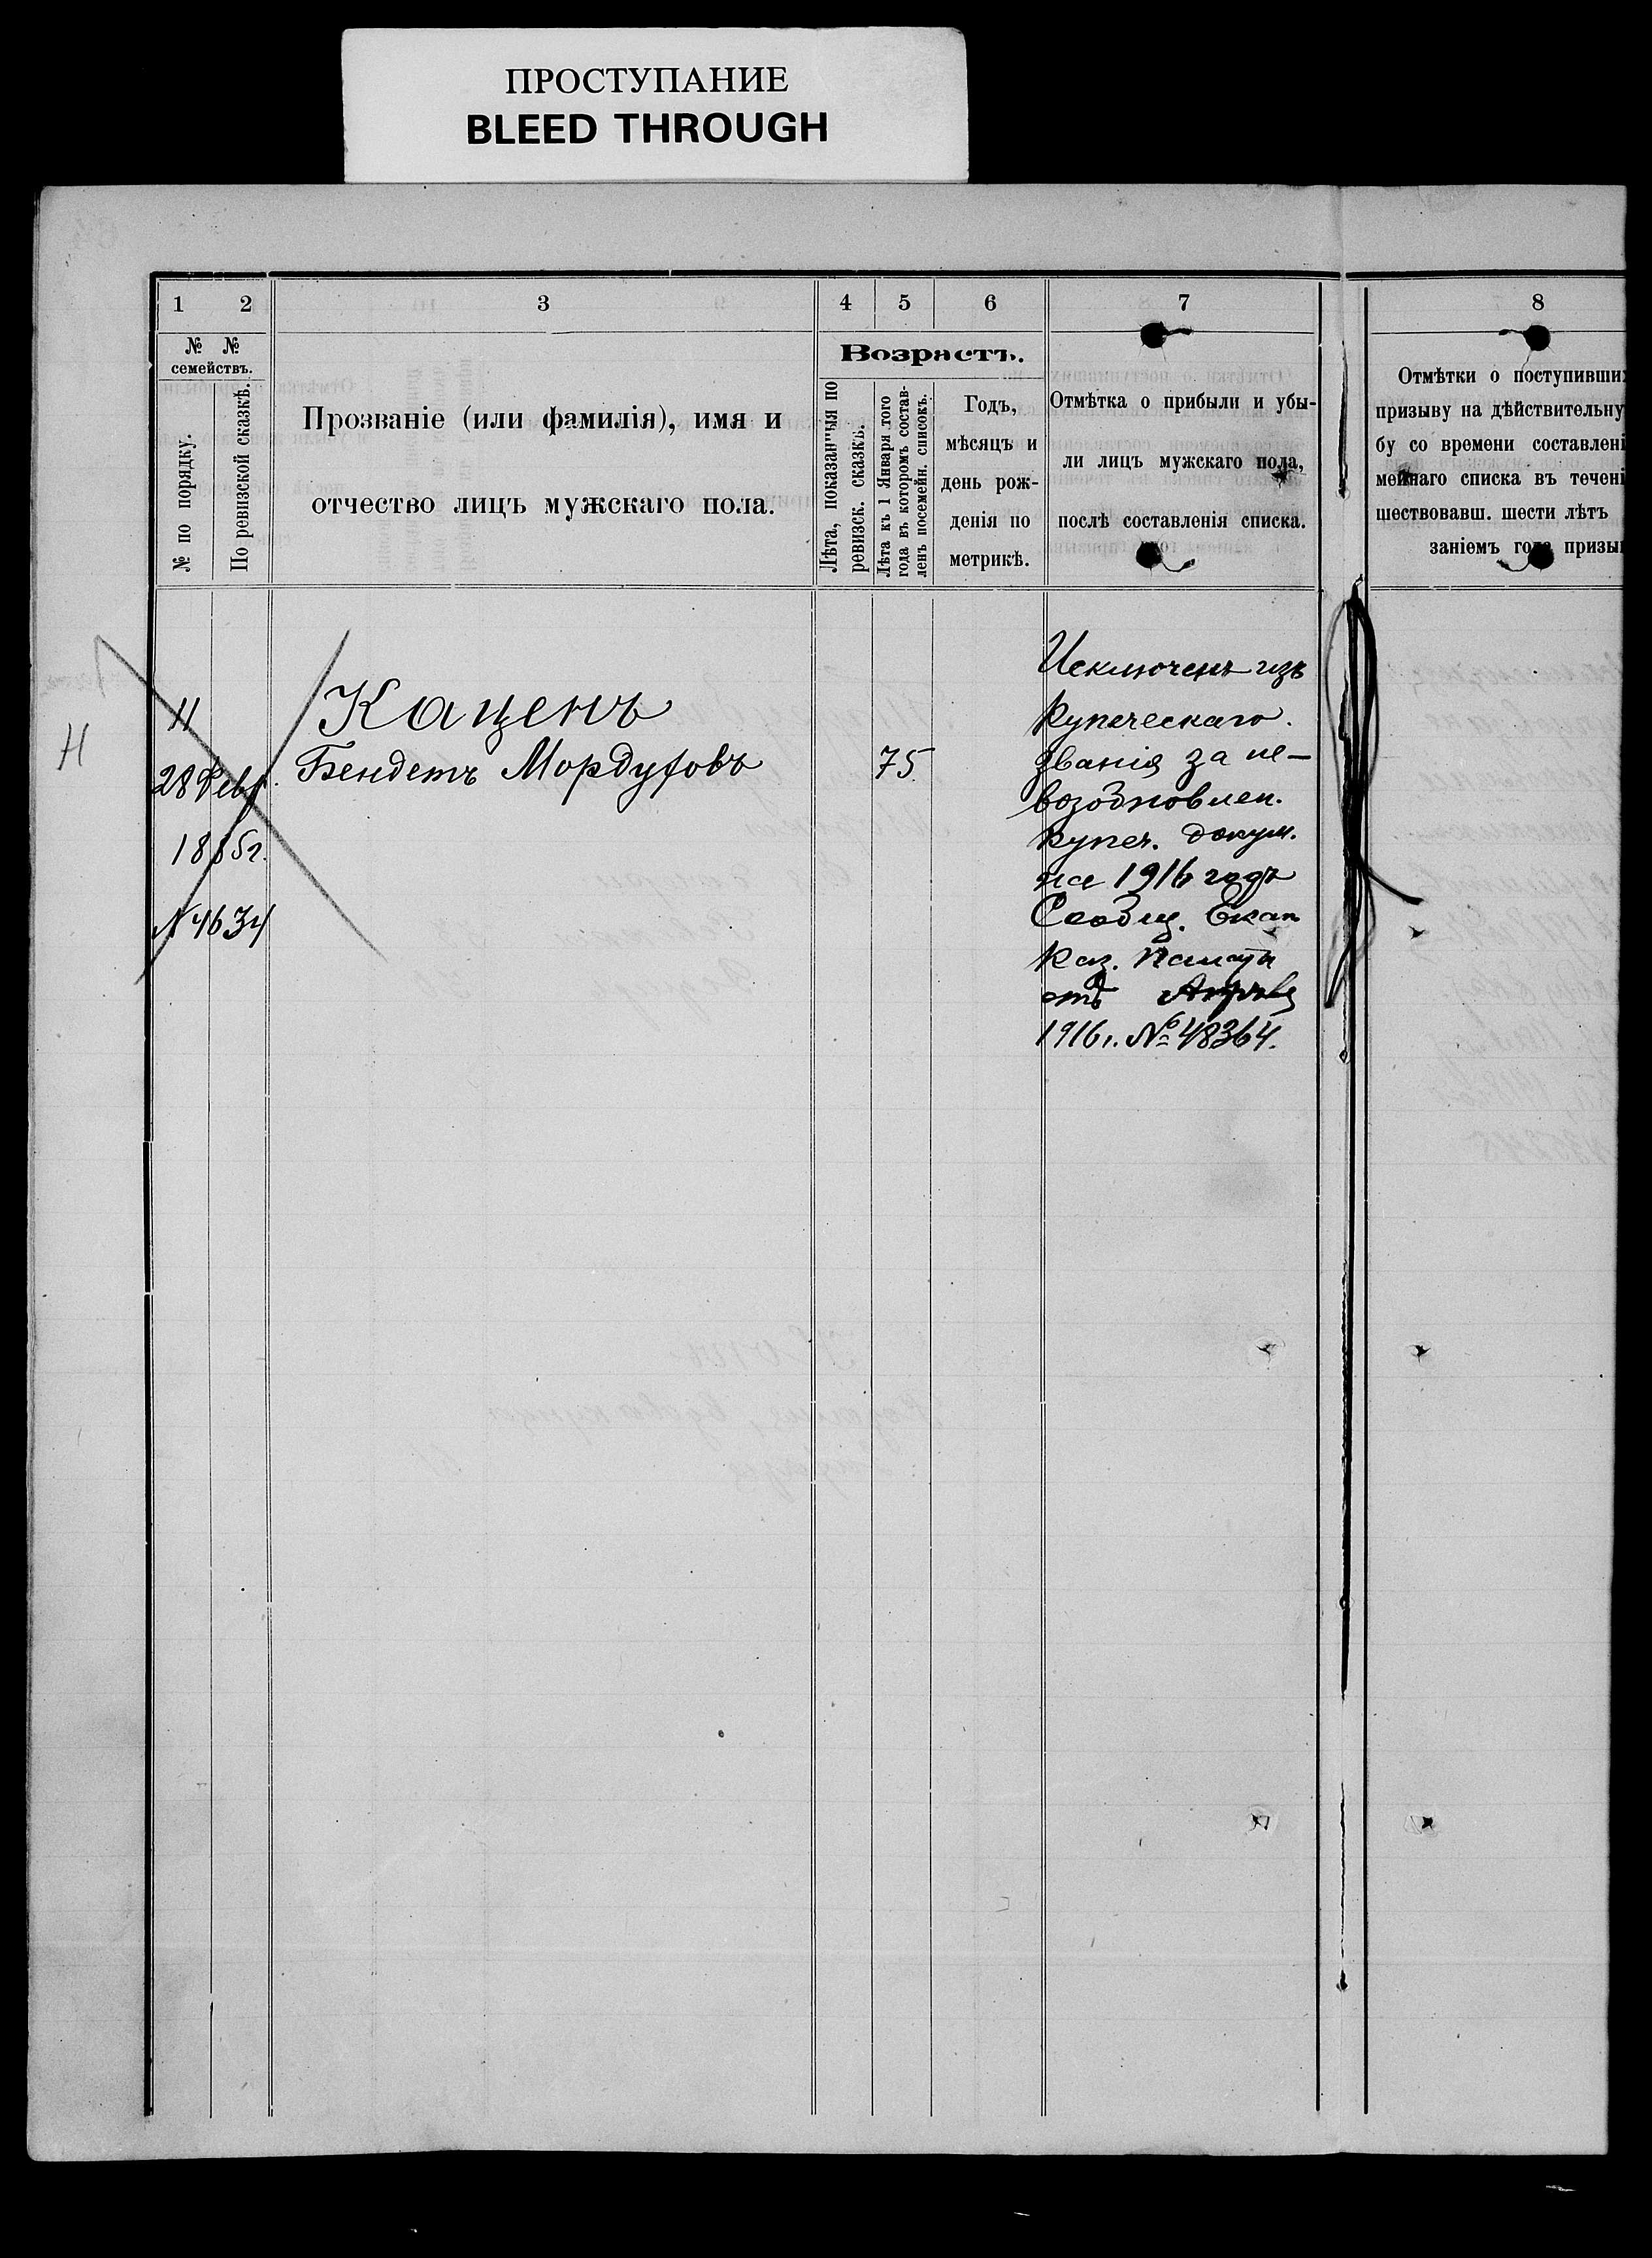 ПРОСТУПАНИЕ
BLEED THROUGH
1 2 3 4 5 6 7 8
№ №
семействъ.
№ по порядку.
По ревизской сказкѣ.
Прозваніе (или фамилія), имя и
отчество лицъ мужскаго пола.
Возрастъ.
Лѣта, показанныя по
ревизск. сказкѣ.
Лѣта къ 1 Января того
года въ которомъ состав-
ленъ посемейн. списокъ.
Годъ,
мѣсяцъ и
день рож-
денія по
метрикѣ.
Отмѣтка о прибыли и убы-
ли лицъ мужскаго пола,
послѣ составленія списка.
Отмѣтки о поступивши
призыву на дѣйствительну
бу со времени составлені
мейнаго списка въ течені
шествовавш. шести лѣтъ
заніемъ года призы
Н
11
28 Февр.
1885г.
№ 4634
Каценъ
Бендетъ Мордуховъ
75
Исключенъ изъ
купеческаго
званія за не-
возобновлен.
купеч. докум.
на 1916 годъ
Сообщ. Екат
Каз. Палаты
отъ
1916 г. № 48364.